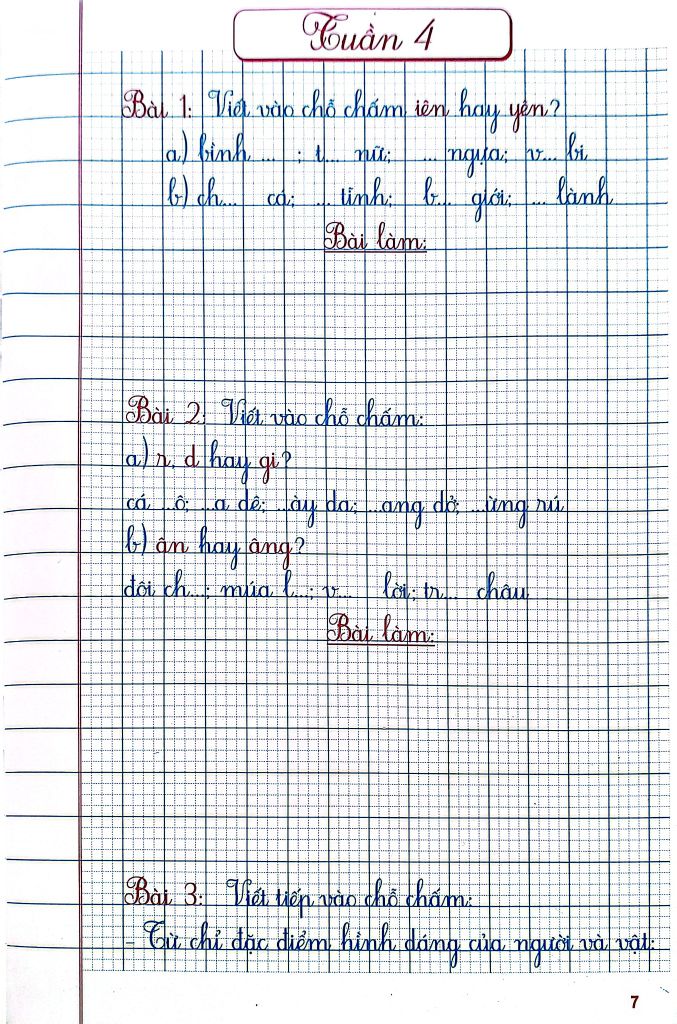 Tuần 4
Bài 1: Viết vào chỗ chấm iên hay yên?
a) bình ... ; t... nữ; ... ngựa; v... bi
b) ch... cá; ... tĩnh; b... giới; ... lành
Bài làm:
Bài 2: Viết vào chỗ chấm:
a) r, d hay gi?
cá ...ô; ...a dê; ...ày da; ...ang dở; ...ừng rú
b) ân hay âng?
đôi ch...; múa l...; v... lời; tr... châu
Bài làm:
Bài 3: Viết tiếp vào chỗ chấm:
- Từ chỉ đặc điểm hình dáng của người và vật:
7